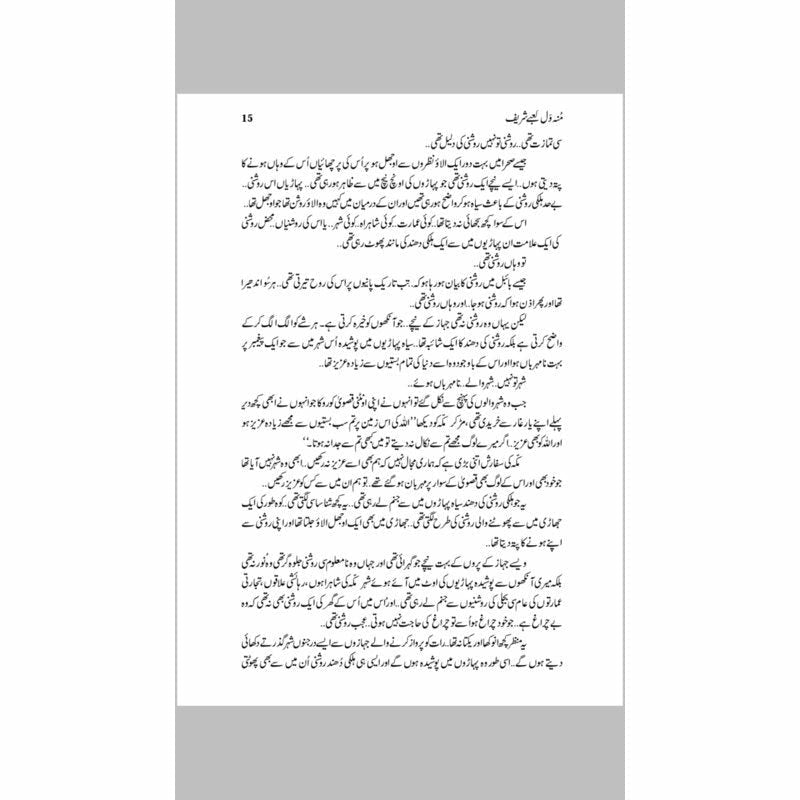 مُنہ وَل کعبے شریف
15
سی تمازت تھی.. روشنی تو نہیں روشنی کی دلیل تھی..
جیسے صحرا میں بہت دور ایک الاؤ نظروں سے اوجھل ہو پر اُس کی پرچھائیاں اُس کے وہاں ہونے کا
پتہ دیتی ہوں.. ایسے نیچے ایک روشنی تھی جو پہاڑیوں کی اونچ نیچ میں سے ظاہر ہو رہی تھی.. پہاڑیاں اس روشنی..
بے حد ہلکی روشنی کے باعث سیاہ ہو کر واضح ہو رہی تھیں اور ان کے درمیان میں کہیں وہ الاؤ روشن تھا جو اوجھل تھا..
اس کے سوا کچھ سُجھائی نہ دیتا تھا.. کوئی عمارت.. کوئی شاہراہ.. کوئی شہر.. یا اس کی روشنیاں.. محض روشنی
کی ایک علامت ان پہاڑیوں میں سے ایک ہلکی دھند کی مانند پھوٹ رہی تھی..
تو وہاں روشنی تھی..
جیسے بائبل میں روشنی کا بیان ہو رہا ہو کہ.. تب تاریک پانیوں پر اس کی روح تیرتی تھی.. ہر سُو اندھیرا
تھا اور پھر اذن ہوا کہ روشنی ہو جا.. اور وہاں روشنی تھی..
لیکن یہاں وہ روشنی نہ تھی جہاز کے نیچے.. جو آنکھوں کو خیرہ کرتی ہے۔ ہر شے کو الگ الگ کر کے
واضح کرتی ہے بلکہ روشنی کی دھند کا ایک شائبہ تھا.. سیاہ پہاڑیوں میں پوشیدہ اُس شہر میں سے جو ایک پیغمبر پر
بہت نامہرباں ہوا اور اس کے باوجود وہ اسے دنیا کی تمام بستیوں سے زیادہ عزیز تھا..
شہر تو نہیں.. شہر والے.. نامہرباں ہوئے..
جب وہ شہر والوں کی پہنچ سے نکل گئے تو انہوں نے اپنی اونٹنی قصویٰ کو روکا جو انہوں نے ابھی کچھ دیر
پہلے اپنے یارِ غار سے خریدی تھی، مڑ کر مکّہ کو دیکھا ’’اللہ کی اس زمین پر تم سب بستیوں سے مجھے زیادہ عزیز ہو
اور اللہ کو بھی عزیز.. اگر میرے لوگ مجھے تم سے نکال نہ دیتے تو میں کبھی تم سے جدا نہ ہوتا۔‘‘
مکّہ کی سفارش اتنی بڑی ہے کہ ہماری مجال نہیں کہ ہم بھی اسے عزیز نہ رکھیں.. ابھی وہ شہر نہیں آیا تھا
جو خود بھی اور اس کے لوگ بھی قصویٰ کے سوار پر مہربان ہو گئے تھے.. تو ہم ان میں سے کس کو عزیز رکھیں..
یہ جو ہلکی روشنی کی دھند سیاہ پہاڑیوں میں سے جنم لے رہی تھی.. یہ کچھ شناسا سی لگتی تھی.. کوہ طور کی ایک
جھاڑی میں سے پھوٹنے والی روشنی کی طرح لگتی تھی.. جھاڑی میں بھی ایک اوجھل الاؤ جلتا تھا اور اپنی روشنی سے
اپنے ہونے کا پتہ دیتا تھا..
ویسے جہاز کے پروں کے بہت نیچے جو گہرائی تھی اور جہاں وہ نامعلوم سی روشنی جلوہ گر تھی وہ نُور نہ تھی
بلکہ میری آنکھوں سے پوشیدہ پہاڑیوں کی اوٹ میں آئے ہوئے شہر مکّہ کی شاہراہوں، رہائشی علاقوں، تجارتی
عمارتوں کی عام سی بجلی کی روشنیوں سے جنم لے رہی تھی.. اور اُس میں اُس کے گھر کی ایک روشنی بھی نہ تھی کہ وہ
بے چراغ ہے.. جو خود چراغ ہو اُسے تو چراغ کی حاجت نہیں ہوتی.. عجب روشنی تھی..
یہ منظر کچھ انوکھا اور یکتا نہ تھا.. رات کو پرواز کرنے والے جہازوں سے ایسے درجنوں شہر گذرتے دکھائی
دیتے ہوں گے.. اسی طور وہ پہاڑوں میں پوشیدہ ہوں گے اور ایسی ہی ہلکی دُھند روشنی اُن میں سے بھی پھوٹتی